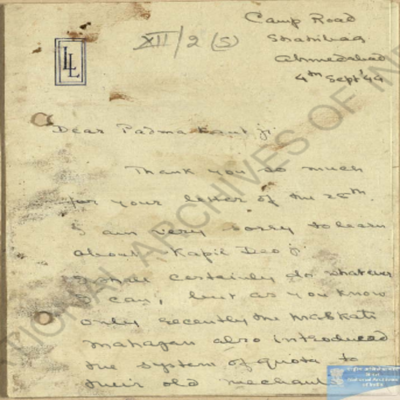 Camp Road
Shahibag
Ahmedabad
4th Sept '44
XII/2 (S)
LL
Dear Padma Kant ji
Thank you so much
for your letter of the 25th
I am very sorry to learn
about Kapil Deo ji.
I shall certainly do whatever
I can, but as you know
only recently the Maskati
Mahajan also introduced
the system of quota to
their old